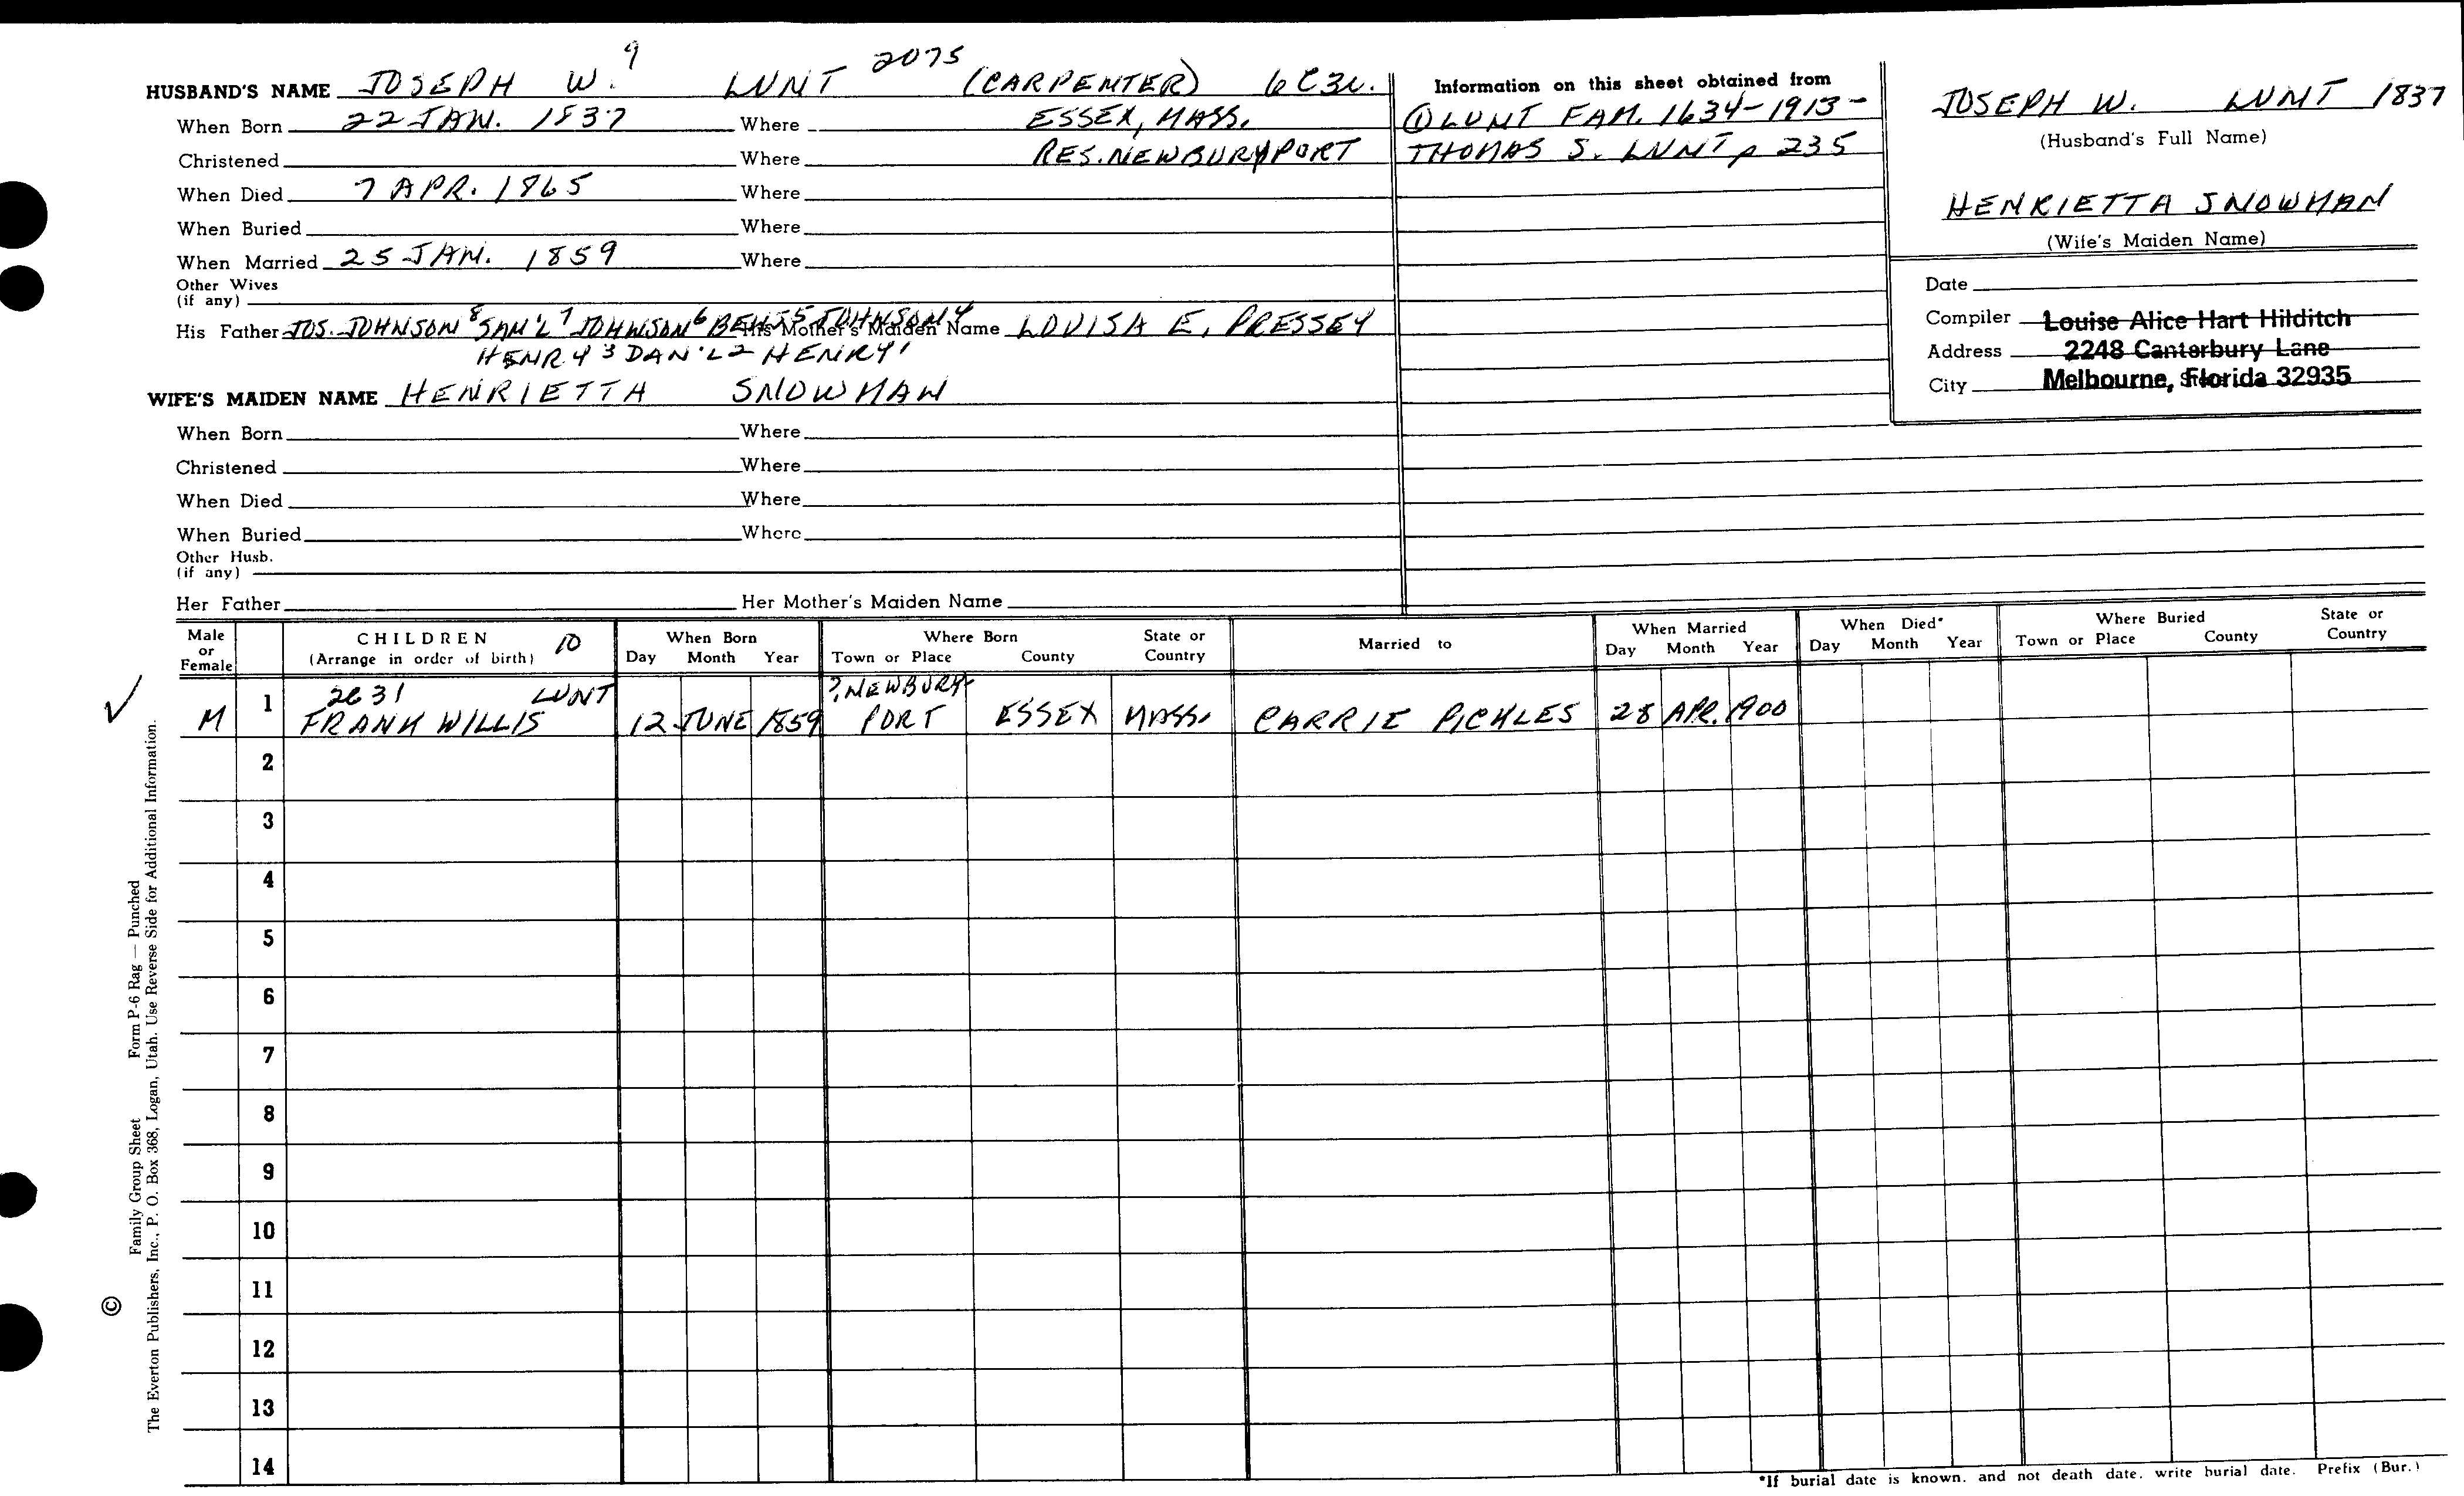 HUSBAND'S NAME JOSEPH W.9 LUNT 2075 (CARPENTER) 6C3L.
When Born 22 JAN. 1837 Where ESSEX, MASS.
Christened Where RES. NEWBURYPORT
When Died 7 APR. 1865 Where
When Buried Where
When Married 25 JAN. 1859 Where
Other Wives
(if any)
His Father JOS. JOHNSON8 SAM'L7 JOHNSON6 BENJ5 JOHNSON4 His Mother's Maiden Name LOUISA E. PRESSEY
HENRY3 DAN'L2 HENRY1
WIFE'S MAIDEN NAME HENRIETTA SNOWMAN
When Born Where
Christened Where
When Died Where
When Buried Where
Other Husb.
(if any)
Her Father Her Mother's Maiden Name
Information on this sheet obtained from
① LUNT FAM. 1634-1913-
THOMAS S. LUNT p 235
JOSEPH W. LUNT 1837
(Husband's Full Name)
HENRIETTA SNOWMAN
(Wife's Maiden Name)
Date
Compiler Louise Alice Hart Hilditch
Address 2248 Canterbury Lane
City Melbourne, Florida 32935 State
Male or Female CHILDREN 10 (Arrange in order of birth) When Born Day Month Year Where Born Town or Place County State or Country Married to When Married Day Month Year When Died* Day Month Year Where Buried Town or Place County State or Country
✓ M 1 2631 LUNT FRANK WILLIS 12 JUNE 1859 ? NEWBURY-PORT ESSEX MASS. CARRIE PICKLES 28 APR. 1900
2
3
4
5
6
7
8
9
10
11
12
13
14
*If burial date is known, and not death date, write burial date. Prefix (Bur.)
© Family Group Sheet Form P-6 Rag — Punched
The Everton Publishers, Inc., P. O. Box 368, Logan, Utah. Use Reverse Side for Additional Information.